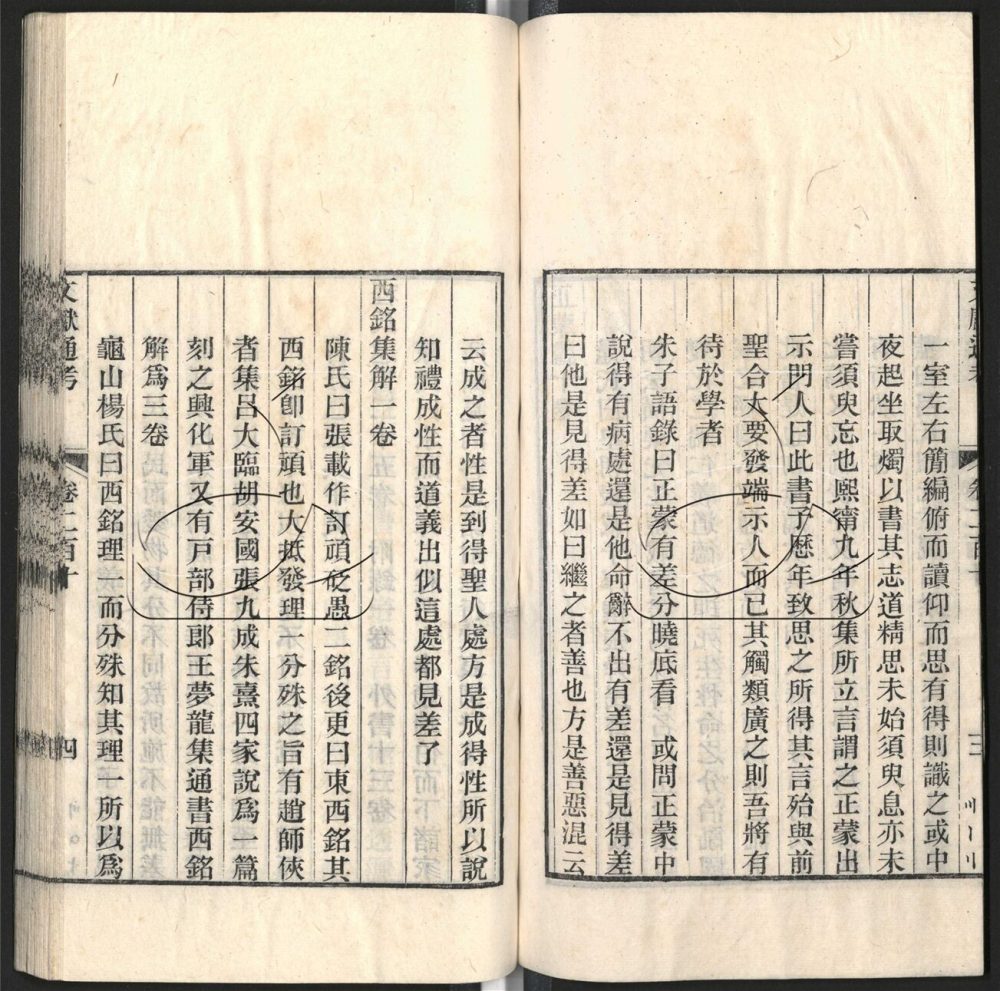 一室左右簡編俯而讀仰而思有得則識之或中
夜起坐取燭以書其志道精思未始須臾息亦未
嘗須臾忘也熙甯九年秋集所立言謂之正蒙出
示門人曰此書予歷年致思之所得其言殆與前
聖合大要發端示人而已其觸類廣之則吾將有
待於學者
朱子語錄曰正蒙有差分曉底看 或問正蒙中
說得有病處還是他命辭不出有差還是見得差
曰他是見得差如曰繼之者善也方是善惡混云
云成之者性是到得聖人處方是成得性所以說
知禮成性而道義出似這處都見差了
西銘集解一卷
陳氏曰張載作訂頑砭愚二銘後更曰東西銘其
西銘卽訂頑也大抵發理一分殊之旨有趙師俠
者集呂大臨胡安國張九成朱熹四家說爲一篇
刻之興化軍又有戸部侍郎王夢龍集通書西銘
解爲三卷
龜山楊氏曰西銘理一而分殊知其理一所以爲
文獻通考 卷二百十 四